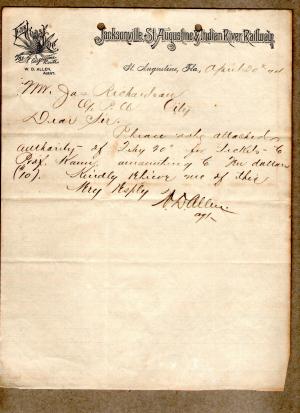 Jacksonville, St. Augustine & Indian River Railway.
W. D. ALLEN,
AGENT.
St. Augustine, Fla., April 20th
Mr. Jas Richardson
G. P. A. City
Dear Sir.
Please note attached
authority of Feby 20" for tickets to
Prof. Kaine amounting to Ten dollars
($10). Kindly relieve me of this
Very Resply
W D Allen
agt